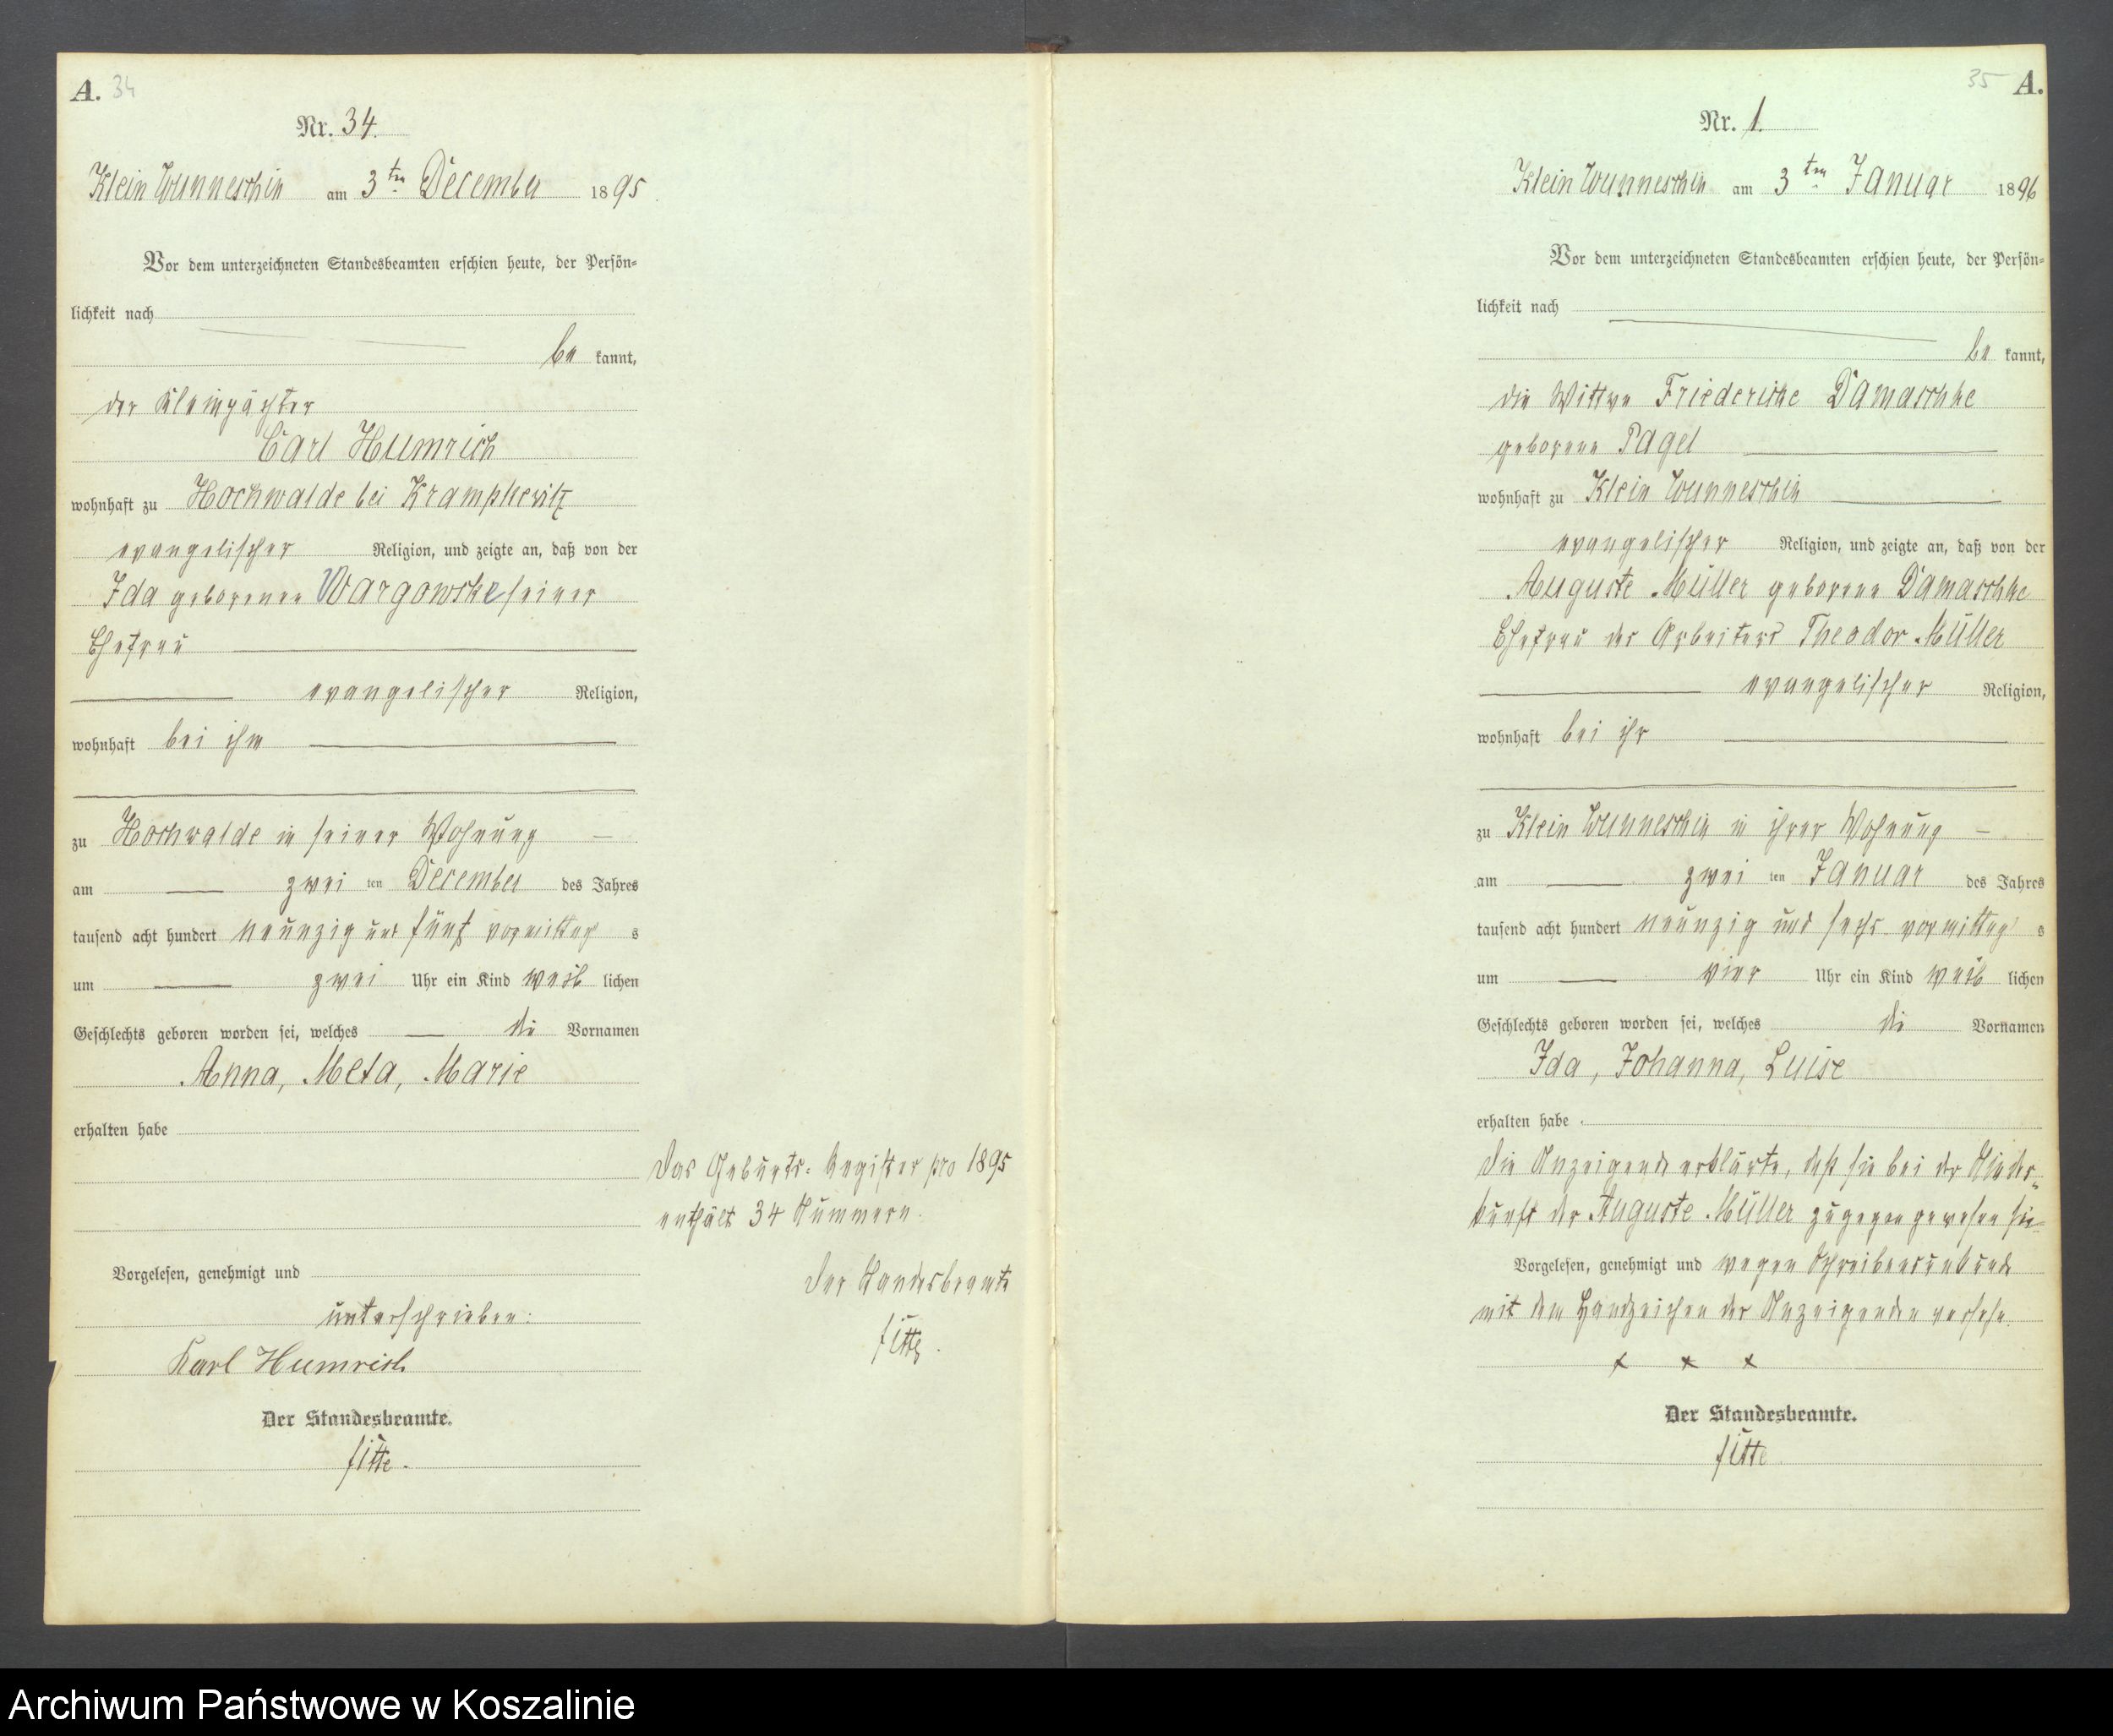 A. 34
Nr. 34.
Klein Wunneschin am 3ten December 1895
Vor dem unterzeichneten Standesbeamten erschien heute, der Persön=
lichkeit nach
be kannt,
der Kleinpächter
Carl Humrich
wohnhaft zu Hochwalde bei Krampkewitz
evangelischer Religion, und zeigte an, daß von der
Ida geborenen Wargowske seiner
Ehefrau
evangelischer Religion,
wohnhaft bei ihm
zu Hochwalde in seiner Wohnung
am zwei ten December des Jahres
tausend acht hundert neunzig und fünf vormittag s
um zwei Uhr ein Kind weib lichen
Geschlechts geboren worden sei, welches die Vornamen
Anna, Meta, Marie
erhalten habe
Vorgelesen, genehmigt und
unterschrieben:
Karl Humrich
Der Standesbeamte.
Das Geburts=Register pro 1895
enthält 34 Nummern.
Der Standesbeamte
35 A.
Nr. 1.
Klein Wunneschin am 3ten Januar 1896
Vor dem unterzeichneten Standesbeamten erschien heute, der Persön=
lichkeit nach
be kannt,
die Wittwe Friedericke Damaschke
geborene Pagel
wohnhaft zu Klein Wunneschin
evangelischer Religion, und zeigte an, daß von der
Auguste Müller geborene Damaschke
Ehefrau des Arbeiters Theodor Müller
evangelischer Religion,
wohnhaft bei ihr
zu Klein Wunneschin in ihrer Wohnung
am zwei ten Januar des Jahres
tausend acht hundert neunzig und sechs vormittag s
um vier Uhr ein Kind weib lichen
Geschlechts geboren worden sei, welches die Vornamen
Ida, Johanna, Luise
erhalten habe.
Die Anzeigende erklärte, daß sie bei der Nieder=
kunft der Auguste Müller zugegen gewesen sei
Vorgelesen, genehmigt und wegen Schreibensunkunde
mit dem Handzeichen der Anzeigenden versehen.
x x x
Der Standesbeamte.
Archiwum Państwowe w Koszalinie